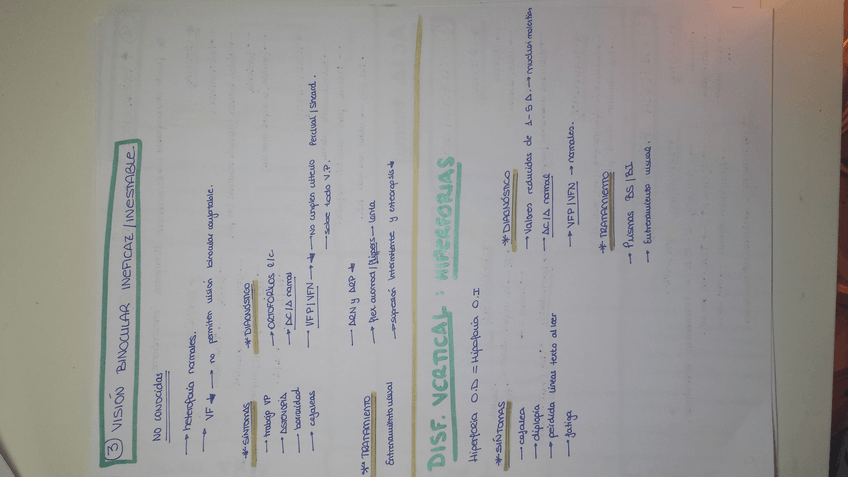 ③ VISIÓN BINOCULAR INEFICAZ / INESTABLE.
NO CONOCIDAS
→ heteroforia normales.
→ VF ↓ → no permiten visión binocular confortable.
* SÍNTOMAS
→ trabajo VP
→ ASTENOPIA
→ borrosidad
→ cefaleas
* DIAGNÓSTICO
→ ORTOFÓRICOS l/c
→ AC/A normal
→ VFP/VFN → ↓ → No cumplen criterio Percival/Sheard.
→ Sobre todo V.P.
→ ARN y ARP ↓
→ Flex acomod/flippers → lenta
→ supresión intermitente y estereopsis ↓
* TRATAMIENTO
Entrenamiento visual
DISF. VERTICAL: HIPERFORIAS
Hiperforia O.D = Hipoforia O.I
* SÍNTOMAS
→ cefalea
→ diplopia
→ perdida líneas texto al leer
→ fatiga
* DIAGNÓSTICO
→ Valores reducidos de 1-5 Δ. → muchas molestias
→ AC/A normal
→ VFP/VFN → normales.
* TRATAMIENTO
→ Prismas BS/BI
→ Entrenamiento visual.